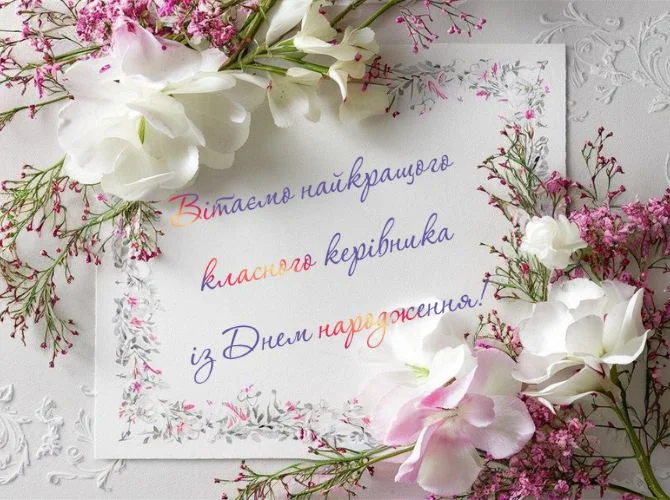 Вітаємо найкращого
класного керівника
із Днем народження!